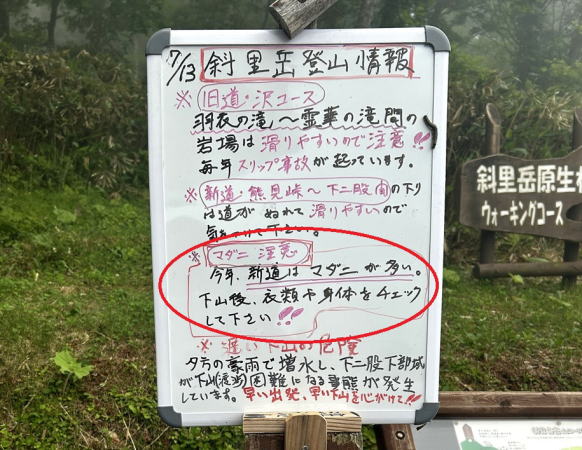 7/13 斜里岳登山情報
※ 旧道・沢コース
羽衣の滝〜霊華の滝間の
岩場は滑りやすいので注意!!
毎年スリップ事故が起っています。
※ 新道・熊見峠〜下二股間の下り
は道がぬれて滑りやすいので
気をつけて下さい。
※ マダニ注意
今年、新道はマダニが多い。
下山後、衣類や身体をチェック
して下さい!!
※ 遅い下山の危険
夕方の豪雨で増水し、下二股下部域
が下山(渡渉)困難になる事態が発生
しています。早い出発、早い下山を心がけて!!
斜里岳原生林
ウォーキングコース